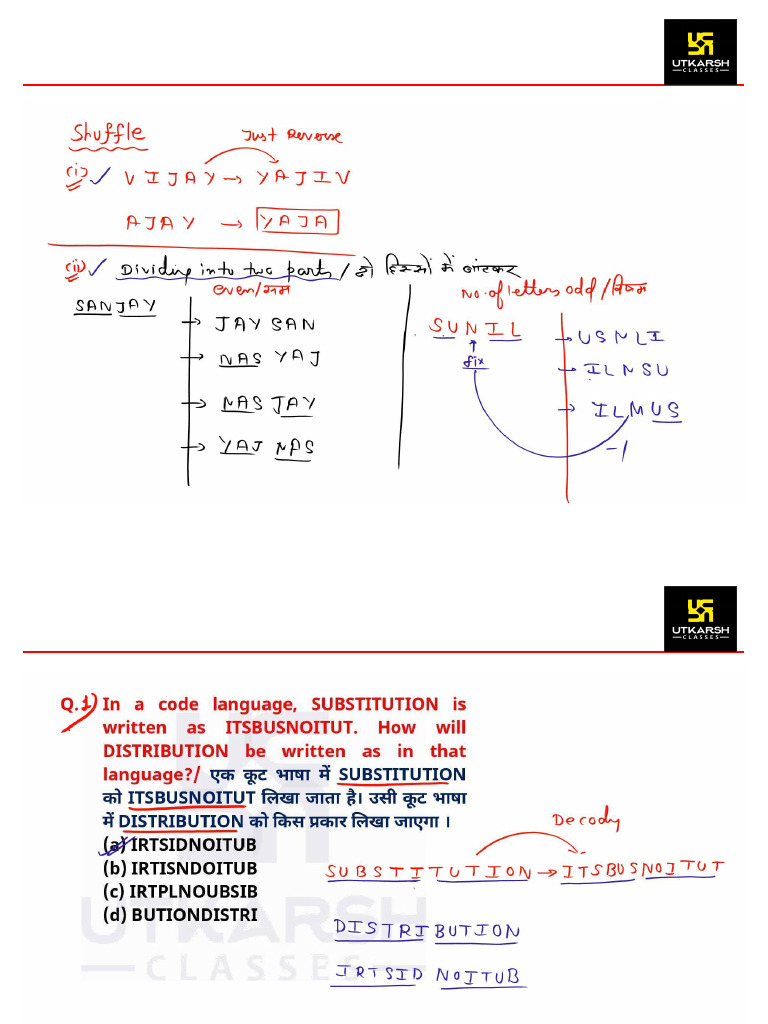 UTKARSH
CLASSES
Shuffle
Just Reverse
(i) ✓ VIJAY → YAJIV
AJAY → YAJA
(ii) ✓ Dividing into two parts / दो हिस्सों में बांटकर
even/सम
SANJAY
→ JAY SAN
→ NAS YAJ
→ NAS JAY
→ YAJ NAS
No. of letters odd / विषम
SUNIL
fix
→ USNLI
→ ILNSU
→ ILNUS
-1
UTKARSH
CLASSES
Q.1) In a code language, SUBSTITUTION is
written as ITSBUSNOITUT. How will
DISTRIBUTION be written as in that
language?/ एक कूट भाषा में SUBSTITUTION
को ITSBUSNOITUT लिखा जाता है। उसी कूट भाषा
में DISTRIBUTION को किस प्रकार लिखा जाएगा ।
(a) IRTSIDNOITUB
(b) IRTISNDOITUB
(c) IRTPLNOUBSIB
(d) BUTIONDISTRI
Decody
SUBSTITUTION → ITSBUSNOITUT
DISTRI BUTION
IRTSID NOITUB
UTKARSH
CLASSES